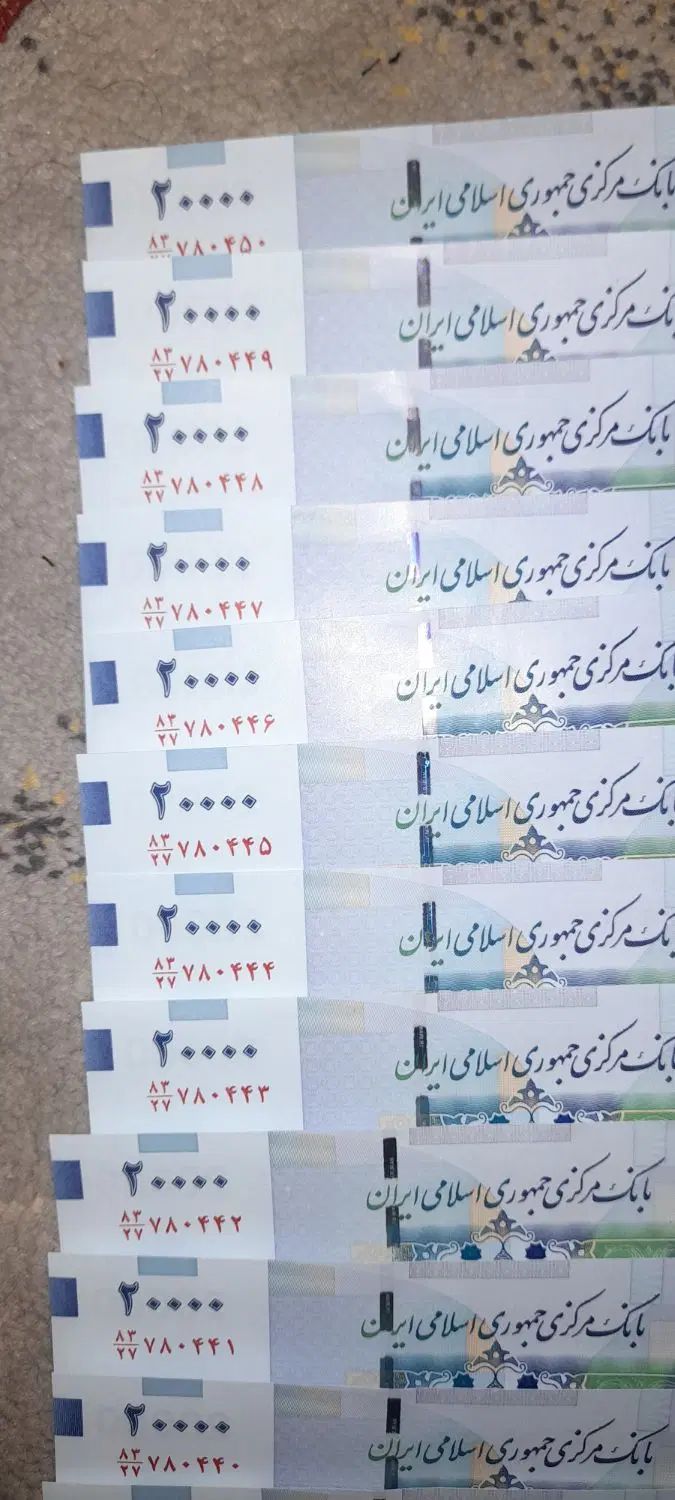 بانک مرکزی جمهوری اسلامی ایران
۲۰۰۰۰
۸۳ ۷۸۰۴۵۰
بانک مرکزی جمهوری اسلامی ایران
۲۰۰۰۰
۸۳/۲۷ ۷۸۰۴۴۹
بانک مرکزی جمهوری اسلامی ایران
۲۰۰۰۰
۸۳/۲۷ ۷۸۰۴۴۸
بانک مرکزی جمهوری اسلامی ایران
۲۰۰۰۰
۸۳/۲۷ ۷۸۰۴۴۷
بانک مرکزی جمهوری اسلامی ایران
۲۰۰۰۰
۸۳/۲۷ ۷۸۰۴۴۶
بانک مرکزی جمهوری اسلامی ایران
۲۰۰۰۰
۸۳/۲۷ ۷۸۰۴۴۵
بانک مرکزی جمهوری اسلامی ایران
۲۰۰۰۰
۸۳/۲۷ ۷۸۰۴۴۴
بانک مرکزی جمهوری اسلامی ایران
۲۰۰۰۰
۸۳/۲۷ ۷۸۰۴۴۳
بانک مرکزی جمهوری اسلامی ایران
۲۰۰۰۰
۸۳/۲۷ ۷۸۰۴۴۲
بانک مرکزی جمهوری اسلامی ایران
۲۰۰۰۰
۸۳/۲۷ ۷۸۰۴۴۱
بانک مرکزی جمهوری اسلامی ایران
۲۰۰۰۰
۸۳/۲۷ ۷۸۰۴۴۰